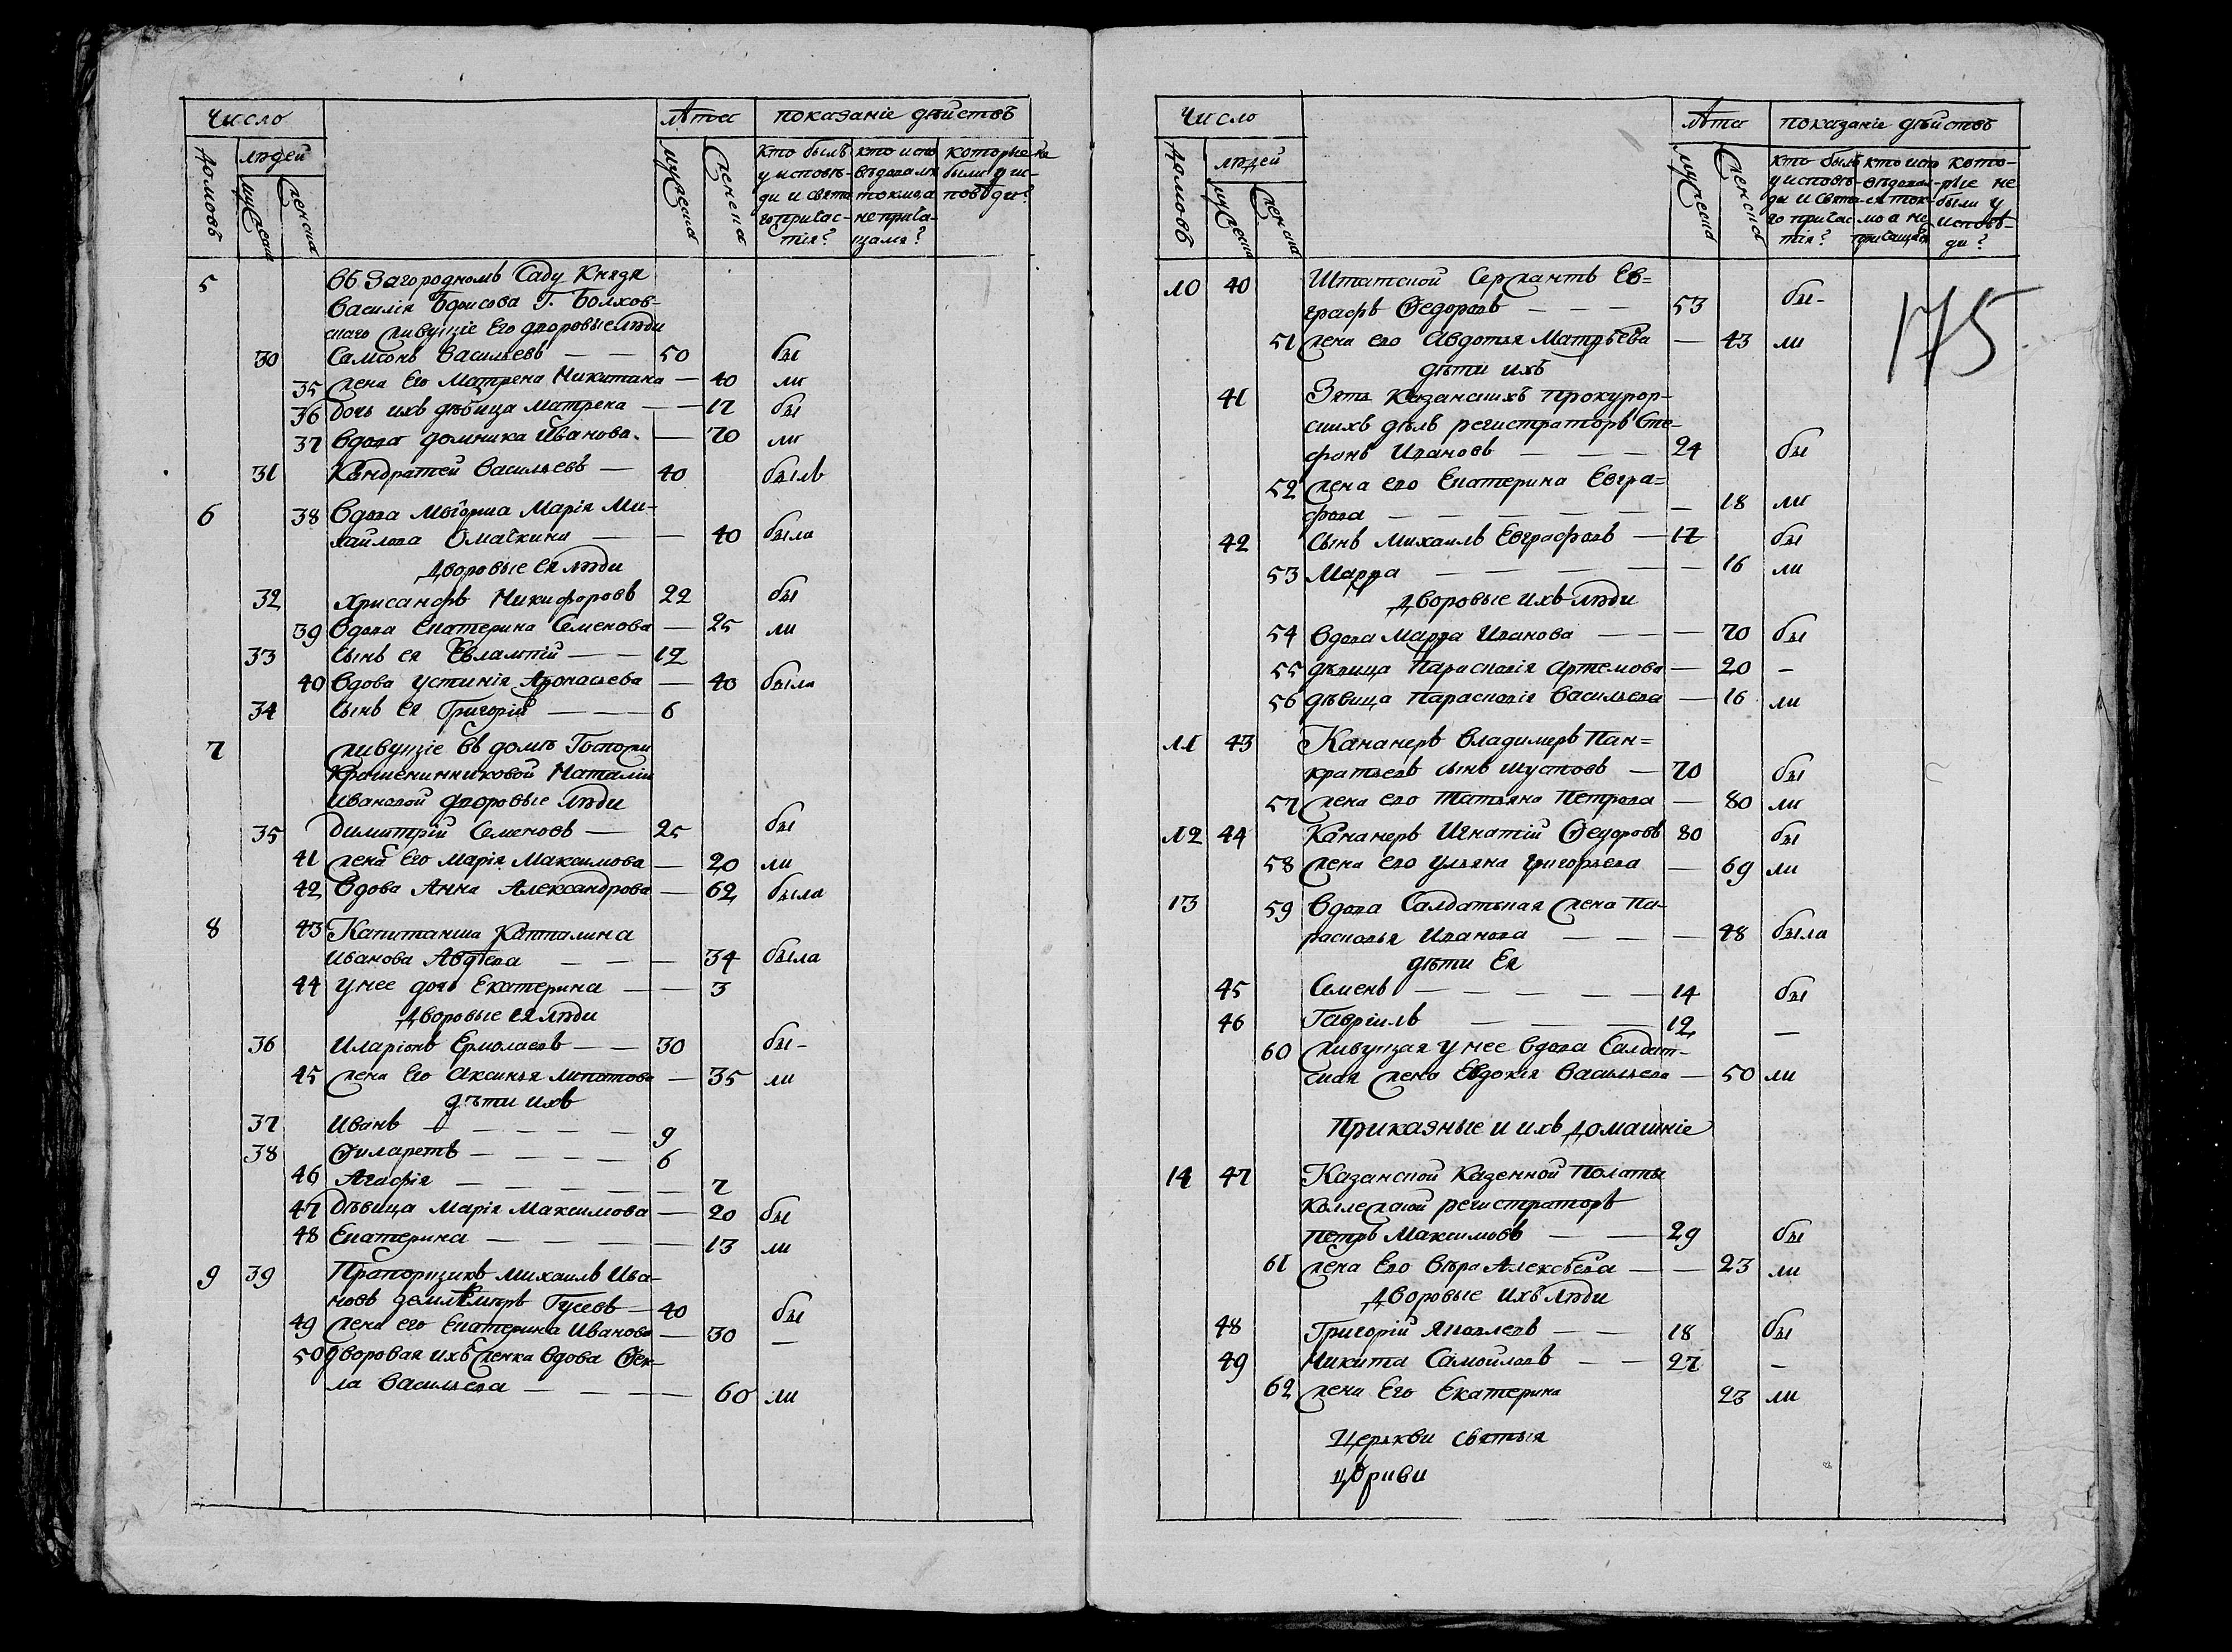 Число
лѣта
показаніе дѣйствъ
домовъ
людей
мужеска
женска
мужеска
женска
кто былъ у исповѣди и святаго причастія?
кто исповѣдался токмо, а не причащался?
которые не были у исповѣди?
5 въ Загородномъ Саду Князя
Василія Борисова Г. Болхов-
скаго живущіе Его дворовые люди
30 Самсонъ Васильевъ — — 50 бы
35 жена Его Матрена Никитина — 40 ли
36 дочь ихъ дѣвица Матрена — — 17 бы
37 вдова Домника Иванова. — 70 ли
31 Кондратей Васильевъ — 40 былъ
6 38 Вдова Маіорша Марія Ми-
хайлова — — 40 была
Дворовые Ея люди
32 Хрисанфъ Никифоровъ 22 бы
39 Вдова Екатерина Семенова — 25 ли
33 сынъ ея Евлампій — — 12
40 Вдова Устинія Афонасьева — 40 была
34 сынъ Ея Григорій — — — 6
7 живущіе въ домѣ Госпожи
Крашенинниковой Наталіи
Ивановой дворовые люди
35 Димитрій Семеновъ — 25 бы
41 жена Его Марія Максимова — 20 ли
42 Вдова Анна Александрова — 62 была
8 43 Капитанша Капталина
Иванова Авдѣева — — — 34 была
44 у нее дочь Екатерина — — 3
Дворовые ея люди
36 Иларіонъ Ермолаевъ — — 30 бы-
45 жена Его Аксинья Липатова — 35 ли
дѣти ихъ
37 Иванъ — — — — — 9
38 Филаретъ — — — — 6
46 Агафія — — — — — — 7
47 Дѣвица Марія Максимова — 20 бы
48 Екатерина — — — — — 13 ли
9 39 Прапорщикъ Михаилъ Ива-
новъ землемѣръ Гусевъ — 40 бы
49 жена его Екатерина Иванова — 30 —
50 Дворовая ихъ женка вдова Фек-
ла Васильева — — — — 60 ли
Число
лѣта
показаніе дѣйствъ
домовъ
людей
мужеска
женска
мужеска
женска
кто былъ у исповѣди и святаго причастія?
кто исповѣдался токмо а не причащался
которые не были у исповѣди?
175
10 40 Штатской Сержантъ Ев=
графъ Федоровъ — — — 53 бы-
51 жена его Авдотья Матвѣева — 43 ли
дѣти ихъ
41 Зять Казанскихъ прокурор-
скихъ дѣлъ регистраторъ Сте-
фанъ Ивановъ — — — 24 бы
52 жена его Екатерина Евгра=
фова — — — — — — — 18 ли
42 Сынъ Михаилъ Евграфовъ — 17 бы
53 Марфа — — — — — — 16 ли
Дворовые ихъ люди
54 Вдова Марфа Иванова — — — 70 бы
55 дѣвица Парасковія Артемова — 20 -
56 дѣвица Парасковія Васильева — 16 ли
11 43 Кананеръ Владимеръ Пан=
кратьевъ сынъ Шустовъ — 70 бы
57 жена его Татьяна Петрова — 80 ли
12 44 Кананеръ Игнатій Федоровъ 80 бы
58 жена его Ульяна Григорьева — 69 ли
13 59 Вдова Салдатская жена Па-
расковья Иванова — — — 48 была
дѣти Ея
45 Семенъ — — — — — 14 бы
46 Гавріилъ — — — 12 —
60 живущая у нее вдова Салдат-
ская жена Евдокія Васильева — 50 ли
Приказные и ихъ домашніе
14 47 Казанской Казенной Полаты
Коллежской регистраторъ
Петръ Максимовъ — — 29 бы
61 жена Его Вѣра Алексѣева — — 23 ли
Дворовые ихъ люди
48 Григорій Яковлевъ — — 18 бы
49 Никита Самойловъ — — 27 —
62 жена Его Екатерина 23 ли
Церькви святыя